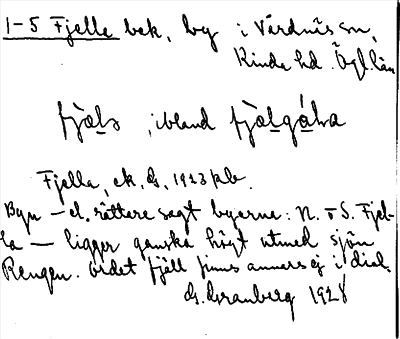 1-5 Fjella bek. by i Vårdnäs sn,
Kinda hd. Ögl. län
fjæls, ibland fjælgáḷsa
Fjella, ek. G. 1923 kb.
Byn — el. rättare sagt byarna: N. o S. Fjel-
la — ligger ganska högt utmed sjön
Rengen. Ordet fjäll finns annars ej i dial.
G. Granberg 1928